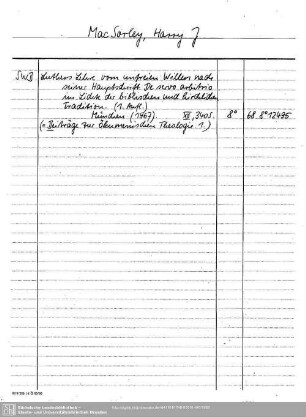 Mac Sorley, Harry J
SWB Luthers Lehre vom unfreien Willen nach
seiner Hauptschrift De servo arbitrio
im Lichte der biblischen und kirchlichen
Tradition. (1. Aufl.)
München (1967). XII, 340 S. 8° 68 8° 12495
(= Beiträge zur Ökumenischen Theologie. 1.)
Sächsische Landesbibliothek –
Staats- und Universitätsbibliothek Dresden